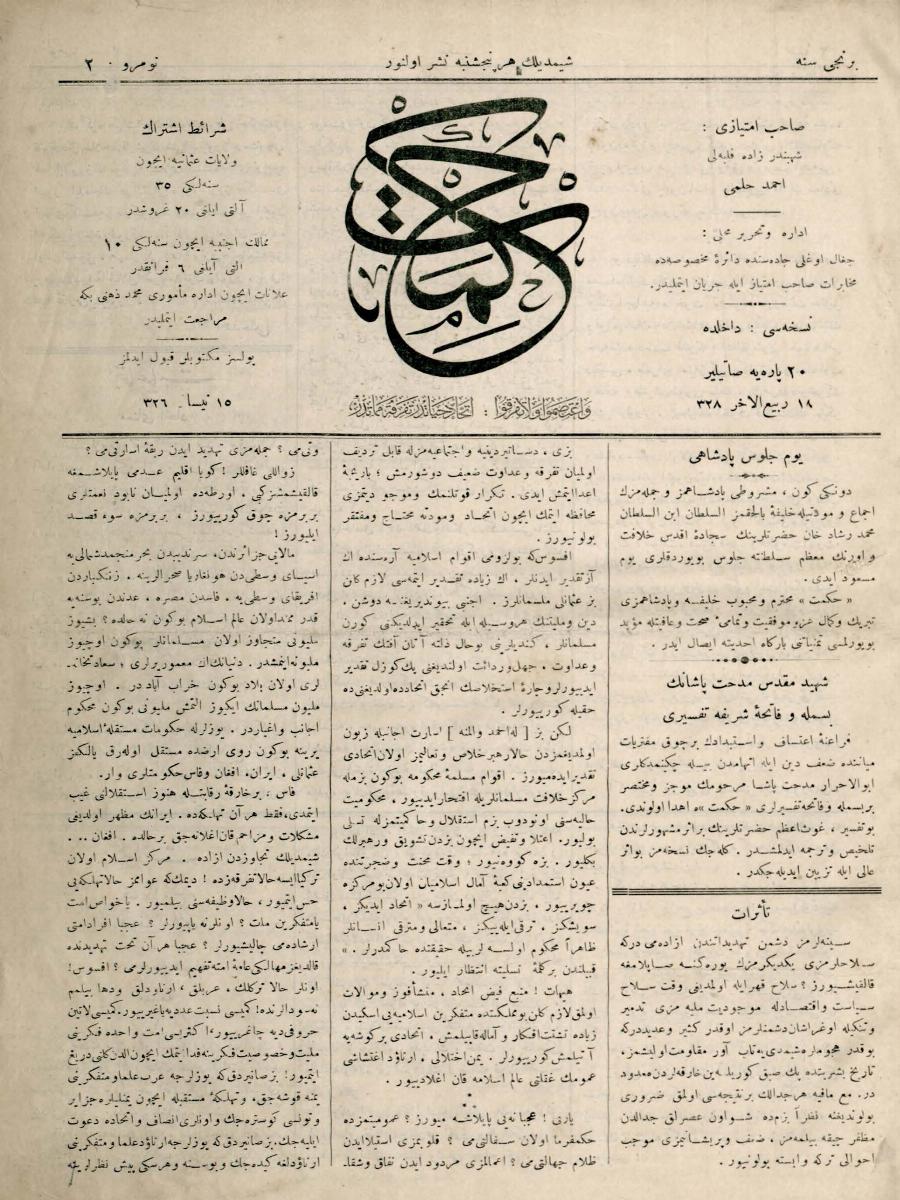 برنجی سنه
شیمدیلك هر پنجشنبه نشر اولنور
نومرو ٢
صاحب امتیازی :
شهبندر زاده فلبه‌لی
احمد حلمی
اداره وتحریر محلی :
جغال اوغلی جاده‌سنده دائرهٔ مخصوصه‌ده
مخابرات صاحب امتیاز ایله جریان ایتملیدر.
نسخه‌سی : داخلده
٢٠ پاره‌یه صاتیلیر
١٨ ربیع الاخر ٣٢٨
حكمت
واعتصموا ولا تفرقوا : اتحاد حیاتدر تفرقه مماتدر
شرائط اشتراك
ولایات عثمانیه ایچون
سنه‌لكی ٣٥
آلتی ایلغی ٢٠ غروشدر
ممالك اجنبیه ایچون سنه‌لكی ١٠
التی آیلغی ٦ فرانقدر
علانات ایچون اداره مأموری محمد ذهنی بكه
مراجعت ایتملیدر
پولسز مكتوبلر قبول ایدلمز
١٥ نیسان ٣٢٦
یوم جلوس پادشاهی
دونكی كون ، مشروطی پادشاهمز و جمله‌مزك
اجماع و مودتیله خلیفهٔ بالحقمز السلطان ابن السلطان
محمد رشاد خان حضرتلرینك سجادهٔ اقدس خلافت
و اورنك معظم سلطنته جلوس بویوردقلری یوم
مسعود ایدی.
« حكمت » محترم ومحبوب خلیفه وپادشاهمزی
تبریك وكمال عز وموفقیت وتمامیٔ صحت وعافیتله مؤید
بویورلمسی تمنیاتنی بارگاه احدیته ایصال ایدر .
شهید مقدس مدحت پاشانك
بسمله و فاتحهٔ شریفه تفسیری
فراعنهٔ اعتساف واستبدادك برچوق مفتریات
میاننده ضعف دین ایله اتهامدن بیله چكنمدكلری
ابوالاحرار مدحت پاشا مرحومك موجز ومختصر
بر بسمله وفاتحه تفسیرلری « حكمت »ه اهدا اولوندی.
بوتفسیر ، غوث اعظم حضرتلرینك براثر مشهورلرندن
تلخیص وترجمه ایدلمشدر . كله‌جك نسخه‌مز بواثر
عالی ایله تزیین ایدیله‌جكدر .
تأثرات
سینه‌لرمز دشمن تهدیداتندن ازاده‌می دركه
سلاحلرمزی یكدیكرمزك یوره‌كنه صاپلامغه
قالقیشیورز ؟ سلاح قهرایله اولمدینی وقت سلاح
سیاست واقتصادله موجودیت ملیه مزی تدمیر
وتنكیله اوغراشان دشمنلرمز اوقدر كثیر وعدیددركه
بوقدر هجوملره شیمدی‌یه تاب آور مقاومت اولیشمز ،
تاریخ بشریتده پك صیق كوریله‌مین خارقه‌لردن معدود
در. مع مافیه هرجدالك برنتیجه‌سی اولمق ضروری
بولوندیغنه نظراً بزم‌ده شو اون عصرلق جدالدن
مظفر چیقه بیلمه‌مز ، ضعف وپریشانیمزی موجب
احوالی تركه وابسته بولونیور .
بزی ، دساتیردینیه واجتماعیه‌مزله قابل تردیف
اولمیان تفرقه وعداوت ضعیف دوشورمش ؛ بازیچهٔ
اعدا ایتمش ایدی. تكرار قوتلنمك وموجودیتمزی
محافظه ایتمك ایچون اتحاد ومودته محتاج ومفتقر
بولونیورز .
افسوس‌كه بولزومی اقوام اسلامیه آره‌سنده اك
آز تقدیر ایدنلر ، اك زیاده تقدیر ایتمه‌سی لازم كلن
بز عثمانلی مسلمانلرز . اجنبی بیوندیریغنه دوشن ،
دین وملیتنك هروسیله ایله تحقیر ایدلدیكنی كورن
مسلمانلر ، كندیلرینی بوحال ذلته آتان آفتك تفرقه
وعداوت ، جهل وردائت اولدیغنی پك كوزل تقدیر
ایدیورلر وچارهٔ استخلاصك انجق اتحادده اولدیغنی ده
حقیله كوریورلر .
لكن بز [ له الحمد والمنه ] اسارت اجانبله زبون
اولمدیغمزدن حالا رهبر خلاص وتعالیمز اولان اتحادی
تقدیر ایده‌میورز . اقوام مسلمهٔ محكومه بوكون بزمله
مركز خلافت مسلمانلریله افتخار ایدییور ، محكومیت
حالیه‌سنی اونودوب بزم استقلال وحاكمیتمزله تسلی
بولیور. اعتلا وتفیض ایتمون بزدن تشویق ورهبرلك
بكلیور . بزه كووه‌نیور ؛ وقت محنت وضجرتنده
عیون استمدادینی كعبهٔ آمال اسلامیان اولان بومركزه
چویرییور . بزدن هیچ اولمازسه « اتحاد ایدیكز ،
سویشكز . ترقی ایله‌ییكز ، متعالی ومترقی انسانلر
ظاهراً محكوم اولسه لربیله حقیقتده حاكمدرلر . »
قبیلندن بركلمهٔ تسلیته انتظار ایلیور .
هیهات ! منبع فیض اتحاد ، منشأ فوز وموالات
اولمق لازم كلن بومملكتده متفكرین اسلامیه‌یی اسكیدن
زیاده تشتت افكار و آماله قاپیلمش ، اتحادی بركوشه‌یه
آتیلمش كوریبورلر . یمن اختلالی ، ارناؤد اغتشاشی
عمومك غفلتی عالم اسلامه قان اغلادییور .
یارنی ! عجبا نه‌یی پایلاشه میورز ؟ عمومیتمزده
حكمفرما اولان سفالتی‌می ؟ قلوبمزی استیلا ایدن
ظلام جهالتی‌می ؟ اعمالمزی مردود ایدن نفاق وشقا‌ـ
وتی‌می ؟ جمله‌مزی تهدید ایدن ربقهٔ اسارتی‌می ؟
زواللی غافللر ! كویا اقلیم عدمی پایلاشمغه
قالقیشمشزكی . اورطه‌ده اولمیان نابود نعمتلری
بربرمزه چوق كورییورز ، بربرمزه سوء قصد
ایلیورز !
مالایی جزائرندن ، سرندیبدن بحر منجمد شمالی‌یه
اسیای وسطی‌دن هونغاریا صحرالرینه ، زنكباردن
افریقای وسطی‌یه ، فاسدن مصره ، عدندن بوسنه‌یه
قدر ممتد اولان عالم اسلام بوكون نه حالده ؟ یشیوز
ملیونی متجاوز اولان مسلمانلر بوكون اوچیوز
ملیونه اینمشدر. دنیانك اك معمور یرلری ؛ سعادتخانه‌ـ
لری اولان بلاد بوكون خراب آباددر . اوچیوز
ملیون مسلمانك ایكیوز التمش ملیونی بوكون محكوم
اجانب واغیاردر . یوزلرله حكومات مستقلهٔ اسلامیه
یرینه بوكون روی ارضده مستقل اوله‌رق یالكنز
عثمانلی ، ایران، افغان وفاس حكومتلری وار.
فاس ، برخارقهٔ رقابتله هنوز استقلالنی غیب
ایتمدی، فقط هر آن تهلكه‌ده . ایرانك مظهر اولدیغی
مشكلات ومزاحم قان اغلانه‌جق برحالده . افغان ...
شیمدیلك تجاوزدن ازاده . مركز اسلام اولان
تركیا ایسه حالا تفرقه زده ! دیمك‌كه عوامز حالا تهلكه‌یی
حس ایتمیور ، حالا وظیفه‌سنی بیلمیور . یا خواص است
یا متفكرین ملت ؟ اونلر نه یاپیورلر ؟ عجبا افراد امتی
ارشاده‌می چالیشیورلر ؟ عجبا هر آن تحت تهدیدنده
قالدیغز مهالكی عامهٔ امته تفهیم ایدییورلرمی ؟ افسوس!
اونلر حالا تركلك ، عربلق ، ارناودلق ودها بیلمم
نه سودالرنده ! كمیسی نسبت عددیه باغیرییور. كمیسی لاتین
حروفی دیه چاغیرییور! اكثریسی امت واحده فكرینی
ملیت وخصوصیت فكرینه فدا ایتمك ایچون الدن كلنی دریغ
ایتمیور! بز صانیردق‌كه یوزلرجه عرب علما ومتفكرینی
یمنه قوشه‌جق ، وتهلكهٔ مستقبله ایچون یمنلیلره جزایر
وتونسی كوستره‌جك واونلری انصاف واتحاده دعوت
ایلیه‌جك. بز صانیردق‌كه یوزلرجه ارناؤد علما ومتفكرینی
ارناؤدلغه كیده‌جك وبوسنه وهرسكی پیش نظرلرینه